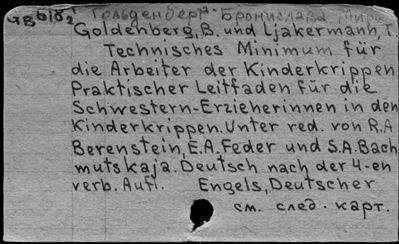 GB 6182
Гольденберг Бронислава
Goldenberg, B. und Ljakermann, T.
Technisches Minimum für
die Arbeiter der Kinderkrippen
Praktischer Leitfaden für die
Schwestern-Erzieherinnen in den
Kinderkrippen. Unter red. von R.A
Berenstein, E.A. Feder und S.A. Bach
mutskaja. Deutsch nach der 4-en
verb. Aufl. Engels, Deutscher
см. след. карт.